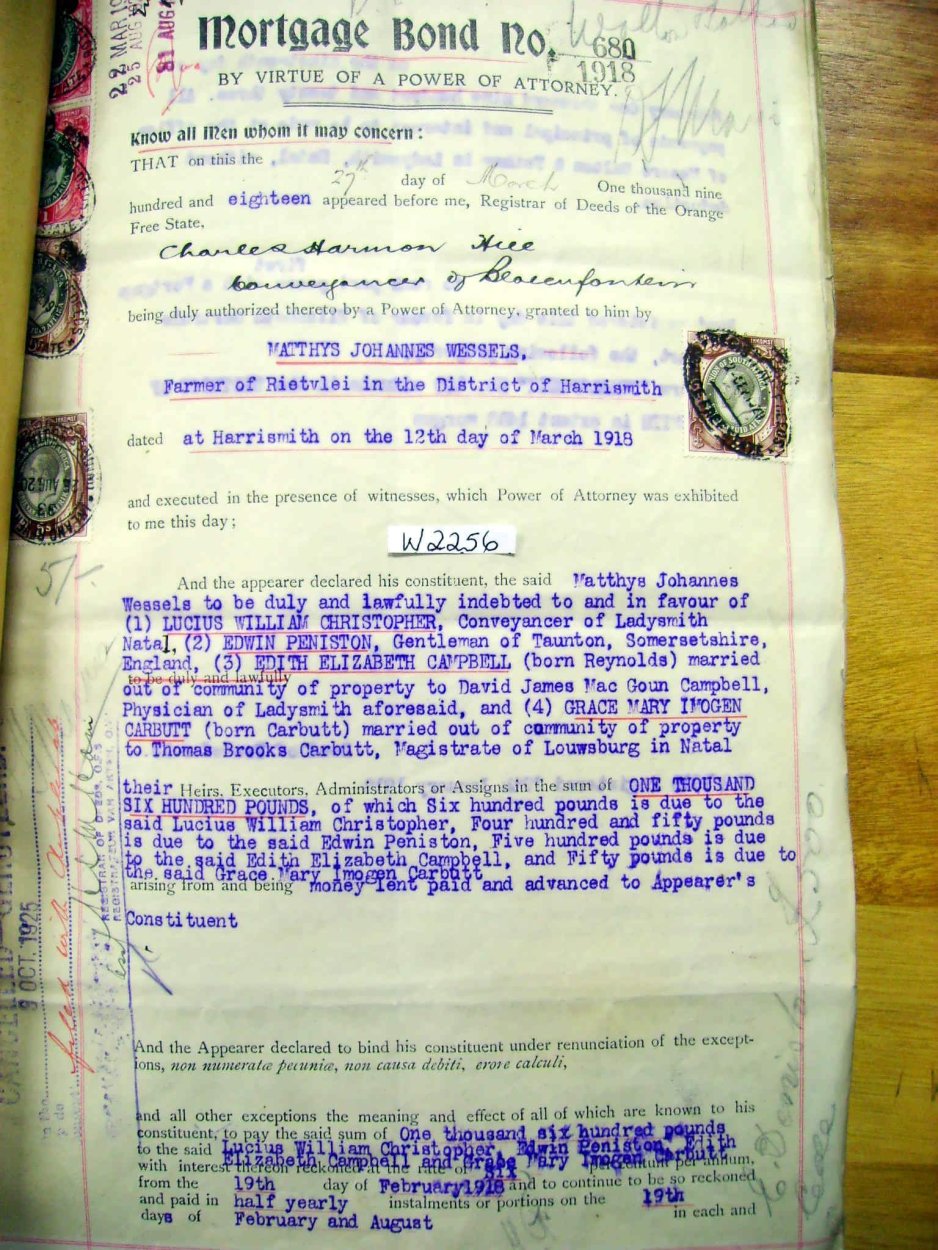 Mortgage Bond No. 680
1918
BY VIRTUE OF A POWER OF ATTORNEY.
Know all Men whom it may concern:
THAT on this the 27th day of March One thousand nine
hundred and eighteen appeared before me, Registrar of Deeds of the Orange
Free State,
Charles Harmon Hill
Conveyancer of Bloemfontein
being duly authorized thereto by a Power of Attorney, granted to him by
MATTHYS JOHANNES WESSELS,
Farmer of Rietvlei in the District of Harrismith
dated at Harrismith on the 12th day of March 1918
and executed in the presence of witnesses, which Power of Attorney was exhibited
to me this day;
W2256
And the appearer declared his constituent, the said Matthys Johannes
Wessels to be duly and lawfully indebted to and in favour of
(1) LUCIUS WILLIAM CHRISTOPHER, Conveyancer of Ladysmith
Natal, (2) EDWIN PENISTON, Gentleman of Taunton, Somersetshire,
England, (3) EDITH ELIZABETH CAMPBELL (born Reynolds) married
to be duly and lawfully
out of community of property to David James Mac Goun Campbell,
Physician of Ladysmith aforesaid, and (4) GRACE MARY IMOGEN
CARBUTT (born Carbutt) married out of community of property
to Thomas Brooks Carbutt, Magistrate of Louwsburg in Natal
their Heirs, Executors, Administrators or Assigns in the sum of ONE THOUSAND
SIX HUNDRED POUNDS, of which Six hundred pounds is due to the
said Lucius William Christopher, Four hundred and fifty pounds
is due to the said Edwin Peniston, Five hundred pounds is due
to the said Edith Elizabeth Campbell, and Fifty pounds is due to
the said Grace Mary Imogen Carbutt
arising from and being money lent paid and advanced to Appearer's
Constituent
And the Appearer declared to bind his constituent under renunciation of the except-
ions, non numeratæ pecuniæ, non causa debiti, erore calculi,
and all other exceptions the meaning and effect of all of which are known to his
constituent, to pay the said sum of One thousand six hundred pounds
to the said Lucius William Christopher, Edwin Peniston, Edith
Elizabeth Campbell and Grace Mary Imogen Carbutt
with interest thereon reckoned at the rate of six per centum per annum,
from the 19th day of February 1918 and to continue to be so reckoned
and paid in half yearly instalments or portions on the 19th in each and
days of February and August
5/-
9 OCT. 1925